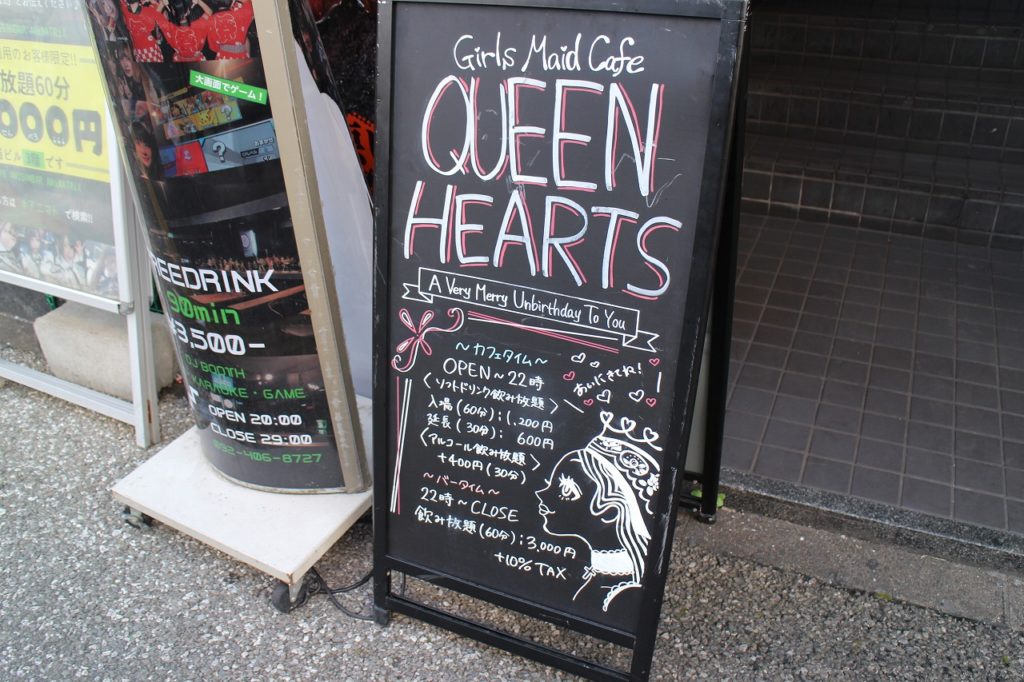 Girls Maid Cafe
QUEEN
HEARTS
A Very Merry Unbirthday To You
～カフェタイム～
OPEN～22時
〈ソフトドリンク飲み放題〉
入場(60分):1,200円
延長(30分): 600円
〈アルコール飲み放題〉
+400円(30分)
～バータイム～
22時～CLOSE
飲み放題(60分):3,000円
+10% TAX
あいにきてね!
大画面でゲーム!
REEDRINK
90min
3,500-
DJ BOOTH
KARAOKE・GAME
OPEN 20:00
CLOSE 29:00
092-406-8727
用のお客様限定!!
放題60分
000円
です
で検索!!